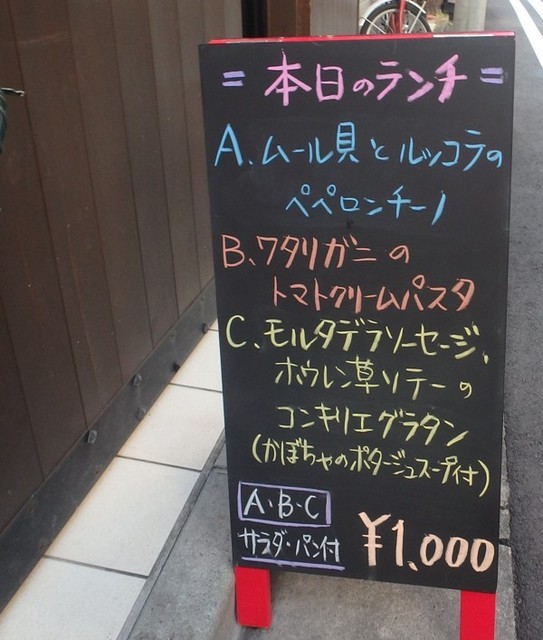 = 本日のランチ =
A、ムール貝とルッコラの
ペペロンチーノ
B、ワタリガニの
トマトクリームパスタ
C、モルタデラソーセージ、
ホウレン草ソテーの
コンキリエグラタン
(かぼちゃのポタージュスープ付)
A・B・C
サラダ・パン付 ¥1,000